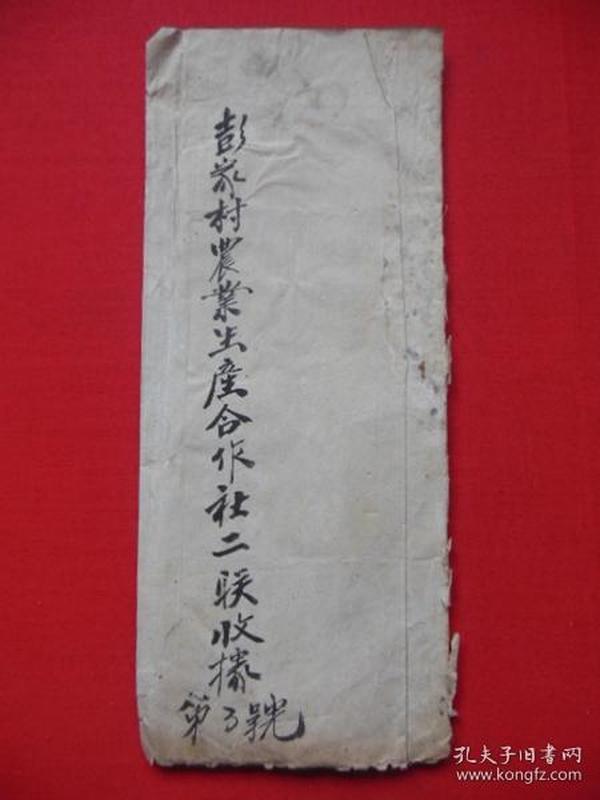 彭家村農業生產合作社二联收據
第3號
孔夫子旧书网
www.kongfz.com